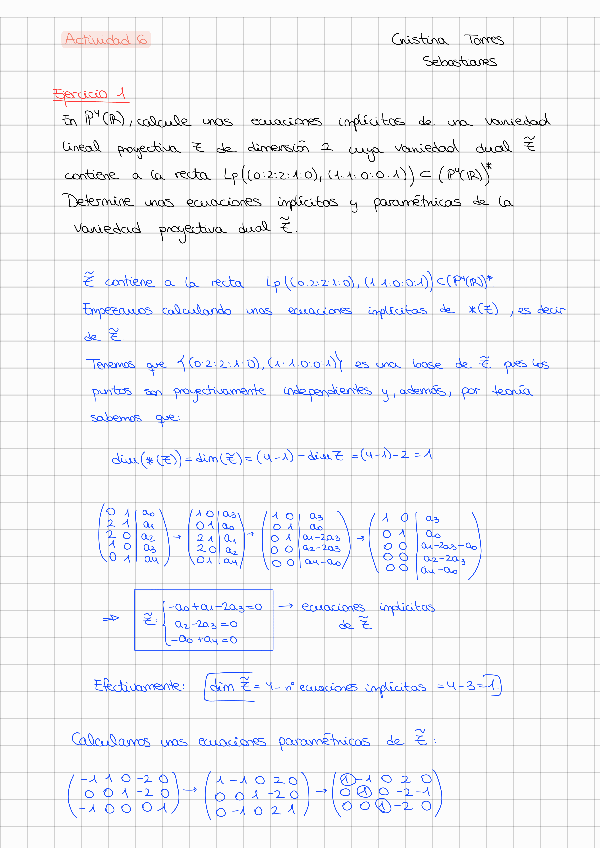 Actividad 6
Cristina Torres
Sebastianes
Ejercicio 1
En P⁴(R), calcule unas ecuaciones implícitas de una variedad
lineal proyectiva Z de dimensión 2 cuya variedad dual Z̃
contiene a la recta Lp((0:2:2:1:0), (1:1:0:0:1)) ⊂ (P⁴(R))*
Determine unas ecuaciones implícitas y paramétricas de la
variedad proyectiva dual Z̃.
Z̃ contiene a la recta Lp((0:2:2:1:0), (1:1:0:0:1)) ⊂ (P⁴(R))*
Empezamos calculando unas ecuaciones implícitas de *(Z), es decir
de Z̃
Tenemos que {(0:2:2:1:0), (1:1:0:0:1)} es una base de Z̃ pues los
puntos son proyectivamente independientes y, además, por teoría
sabemos que:
dim(*(Z)) = dim(Z̃) = (4-1) - dim Z = (4-1) - 2 = 1
(0 1 | a0      (1 0 | a3      (1 0 | a3      (1 0 | a3
2 1 | a1      0 1 | a0      0 1 | a0      0 1 | a0
2 0 | a2  →  2 1 | a1  →  0 1 | a1-2a3  →  0 0 | a1-2a3-a0
1 0 | a3      2 0 | a2      0 0 | a2-2a3      0 0 | a2-2a3
0 1 | a4)      0 1 | a4)      0 0 | a4-a0)      0 0 | a4-a0)
-a0+a1-2a3=0 → ecuaciones implícitas
⇒ Z̃: { a2-2a3=0 de Z̃
-a0+a4=0
Efectivamente: dim Z̃ = 4 - nº ecuaciones implícitas = 4-3 = 1
Calculamos unas ecuaciones paramétricas de Z̃:
(-1 1 0 -2 0      (1 -1 0 2 0      (1 -1 0 2 0
0 0 1 -2 0  →  0 0 1 -2 0  →  0 1 0 -2 -1
-1 0 0 0 1)      0 -1 0 2 1)      0 0 1 -2 0)